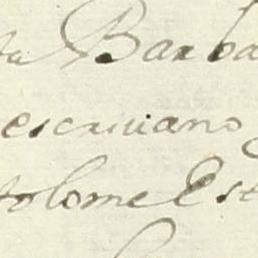 ta Barba
escriuano
tolome Est